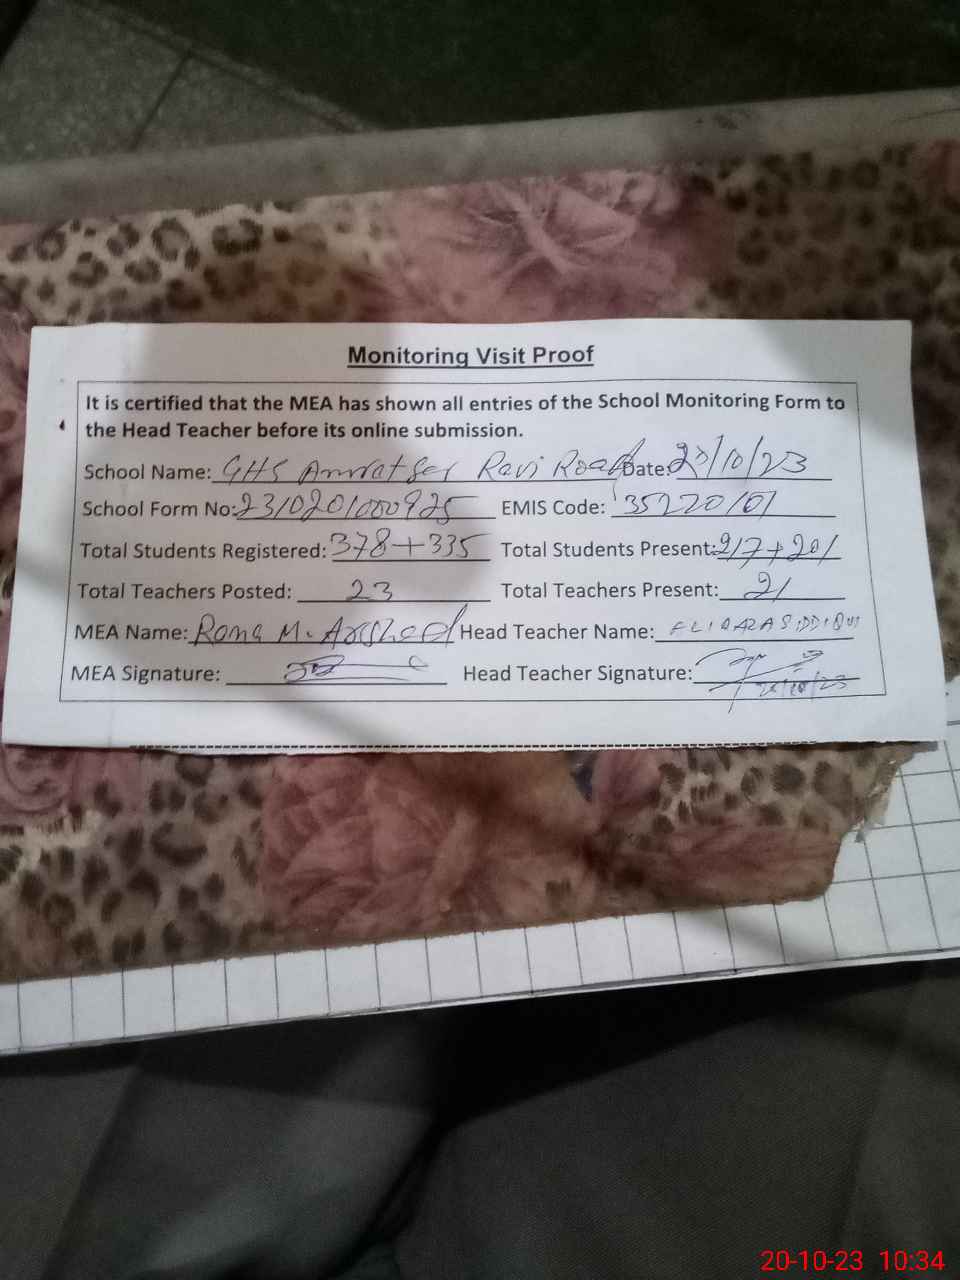 Monitoring Visit Proof
It is certified that the MEA has shown all entries of the School Monitoring Form to
the Head Teacher before its online submission.
School Name: GHS Amratser Ravi Road Date: 20/10/23
School Form No: 2310201000925 EMIS Code: 35220101
Total Students Registered: 378+335 Total Students Present: 217+201
Total Teachers Posted: 23 Total Teachers Present: 21
MEA Name: Rana M. Arshad Head Teacher Name: SIDDIQUI
MEA Signature: Head Teacher Signature:
20/10/23
20-10-23 10:34